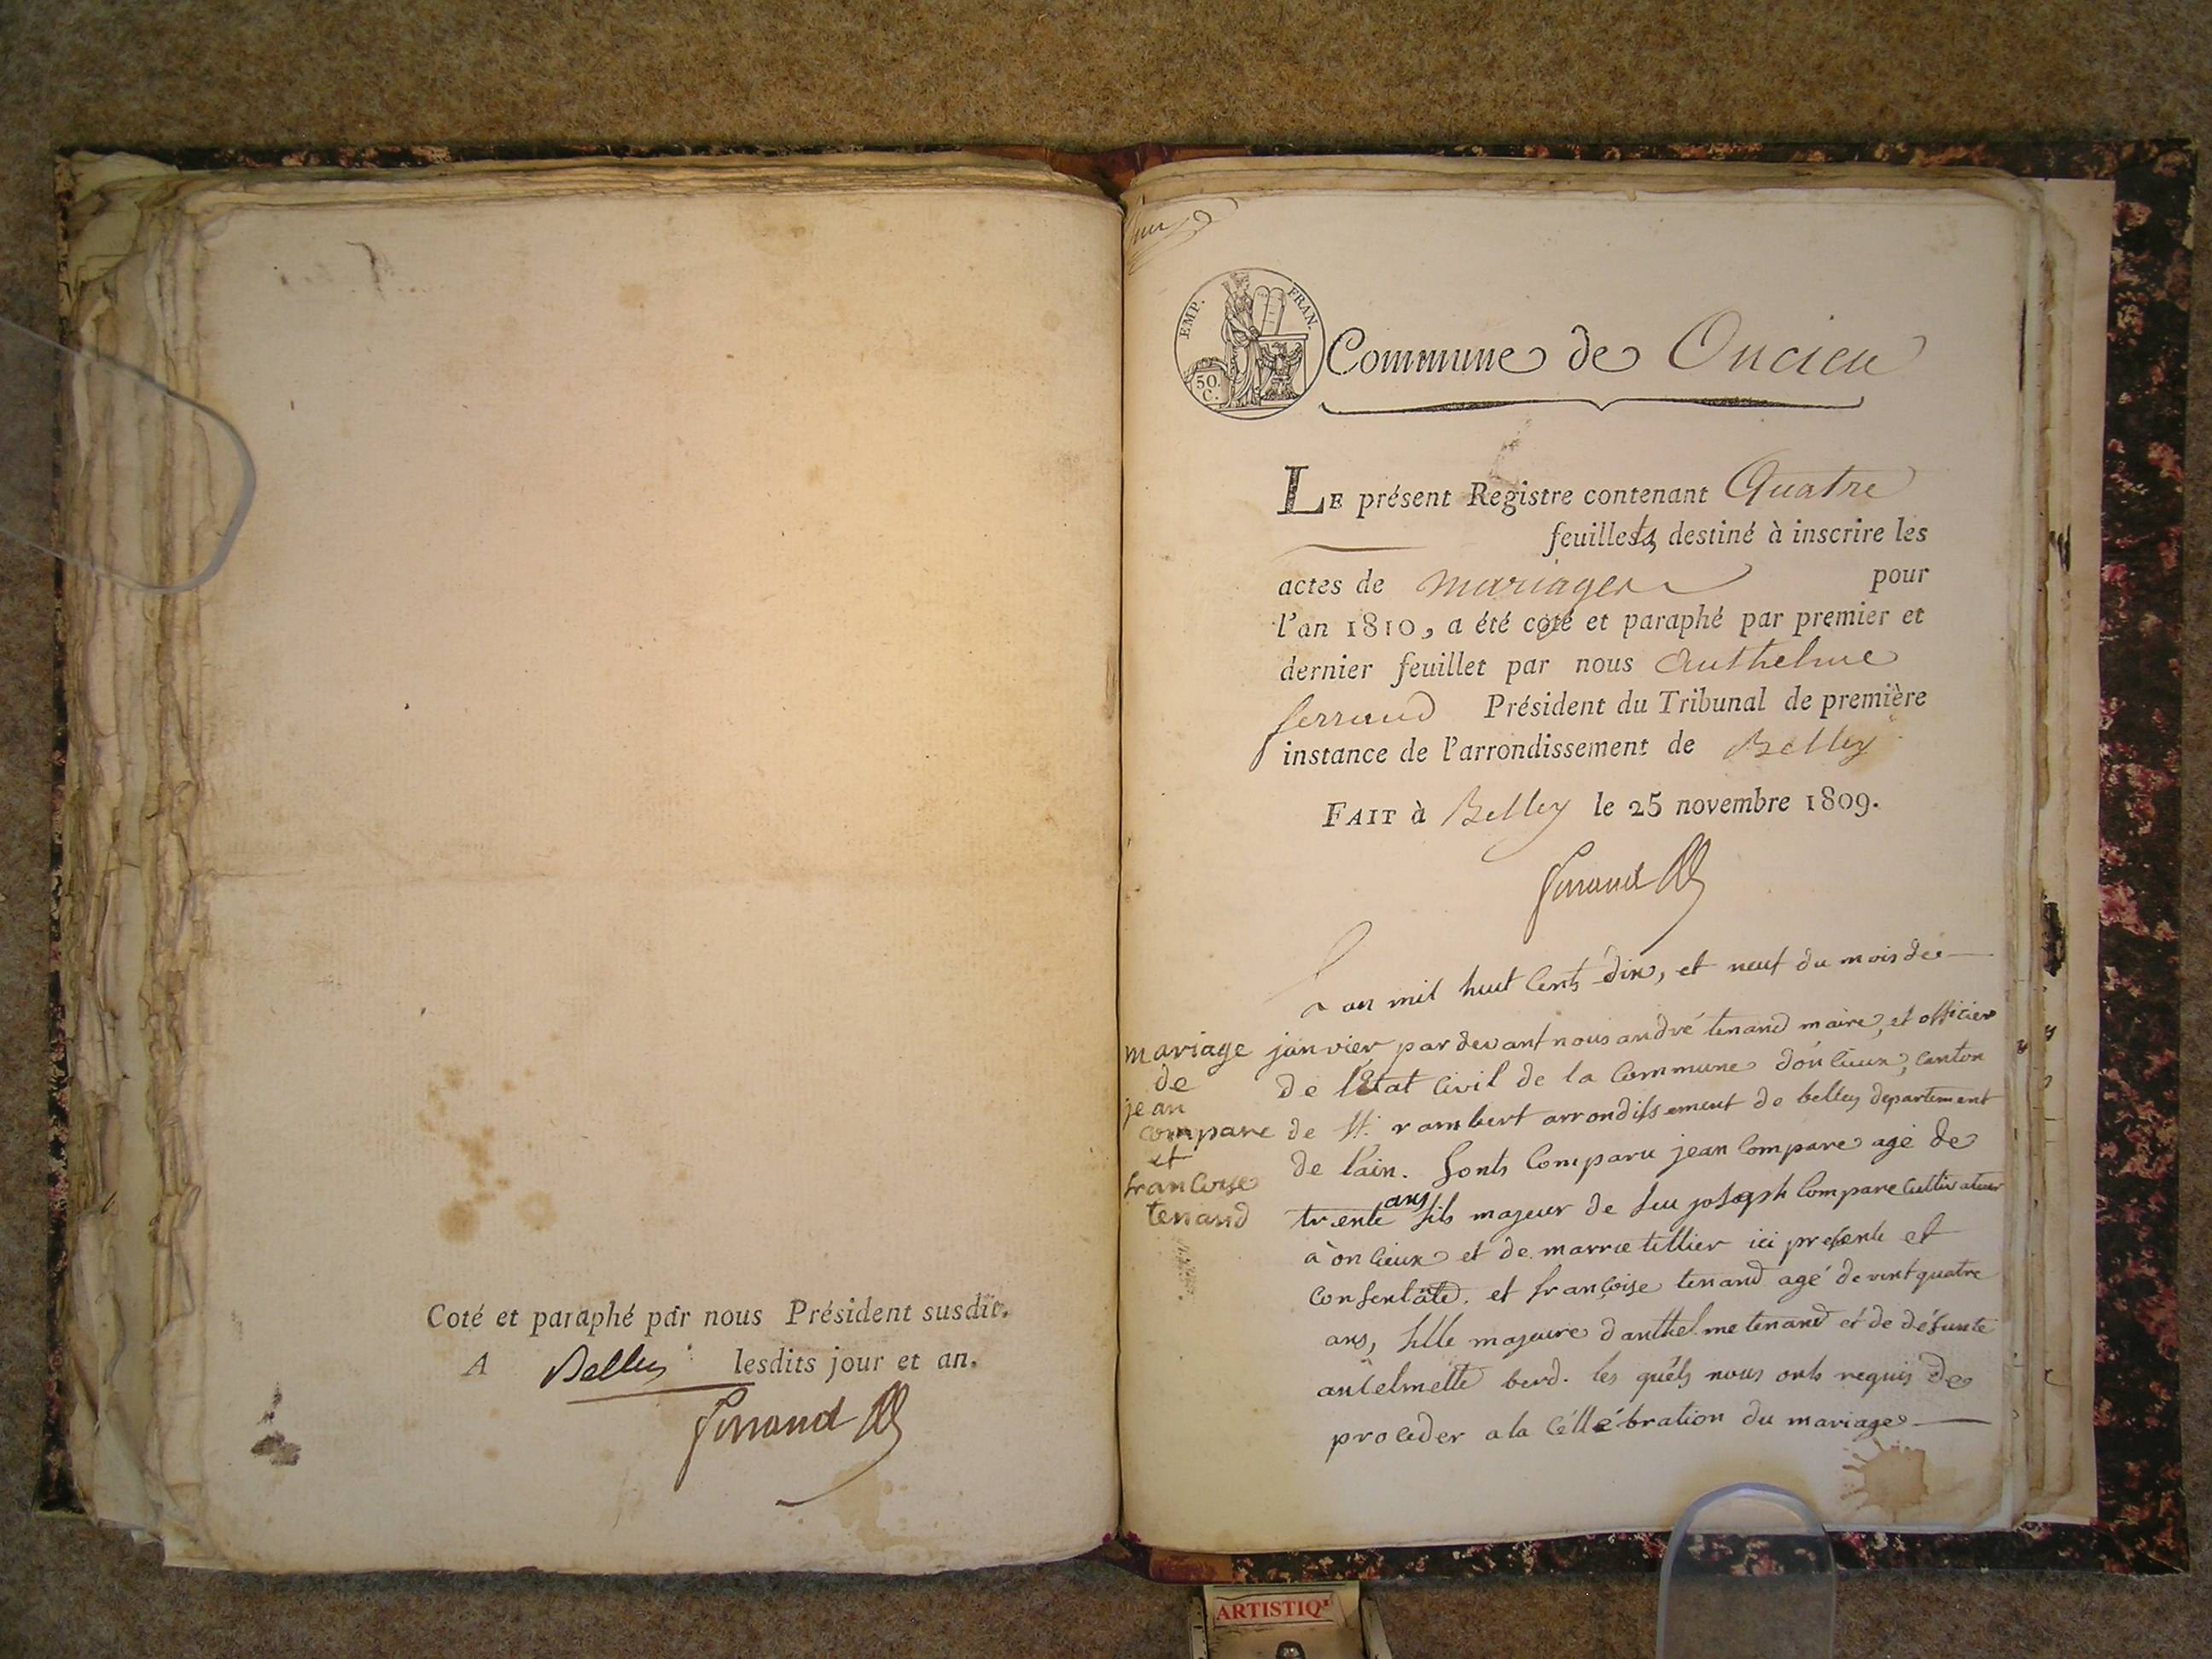 Coté et paraphé par nous Président susdit.
A Belley lesdits jour et an.
ferrand
EMP. FRAN.
50.
C.
Commune de Oncieu
LE présent Registre contenant Quatre
feuillets destiné à inscrire les
actes de mariages pour
l'an 1810, a été coté et paraphé par premier et
dernier feuillet par nous Anthelme
ferrand Président du Tribunal de première
instance de l'arrondissement de Belley
FAIT à Belley le 25 novembre 1809.
ferrand
mariage
de
jean
compare
et
francoise
tenand
L an mil huit cents dix, et neuf du mois de
janvier, par devant nous andré tenand maire, et officier
de l'Etat civil de la commune d'oncieux, canton
de St. rambert arrondissement de belley departement
de l'ain. sonts comparu jean compare agé de
trente ans fils majeur de feu joseph compare cultivateur
à oncieux et de marrie tillier ici presente et
consentate. et françoise tenand agé de vint quatre
ans, fille majeure d'anthelme tenand et de défunte
antelmette berd. les quéls nous onts requis de
proceder a la céllébration du mariage
ARTISTIQ